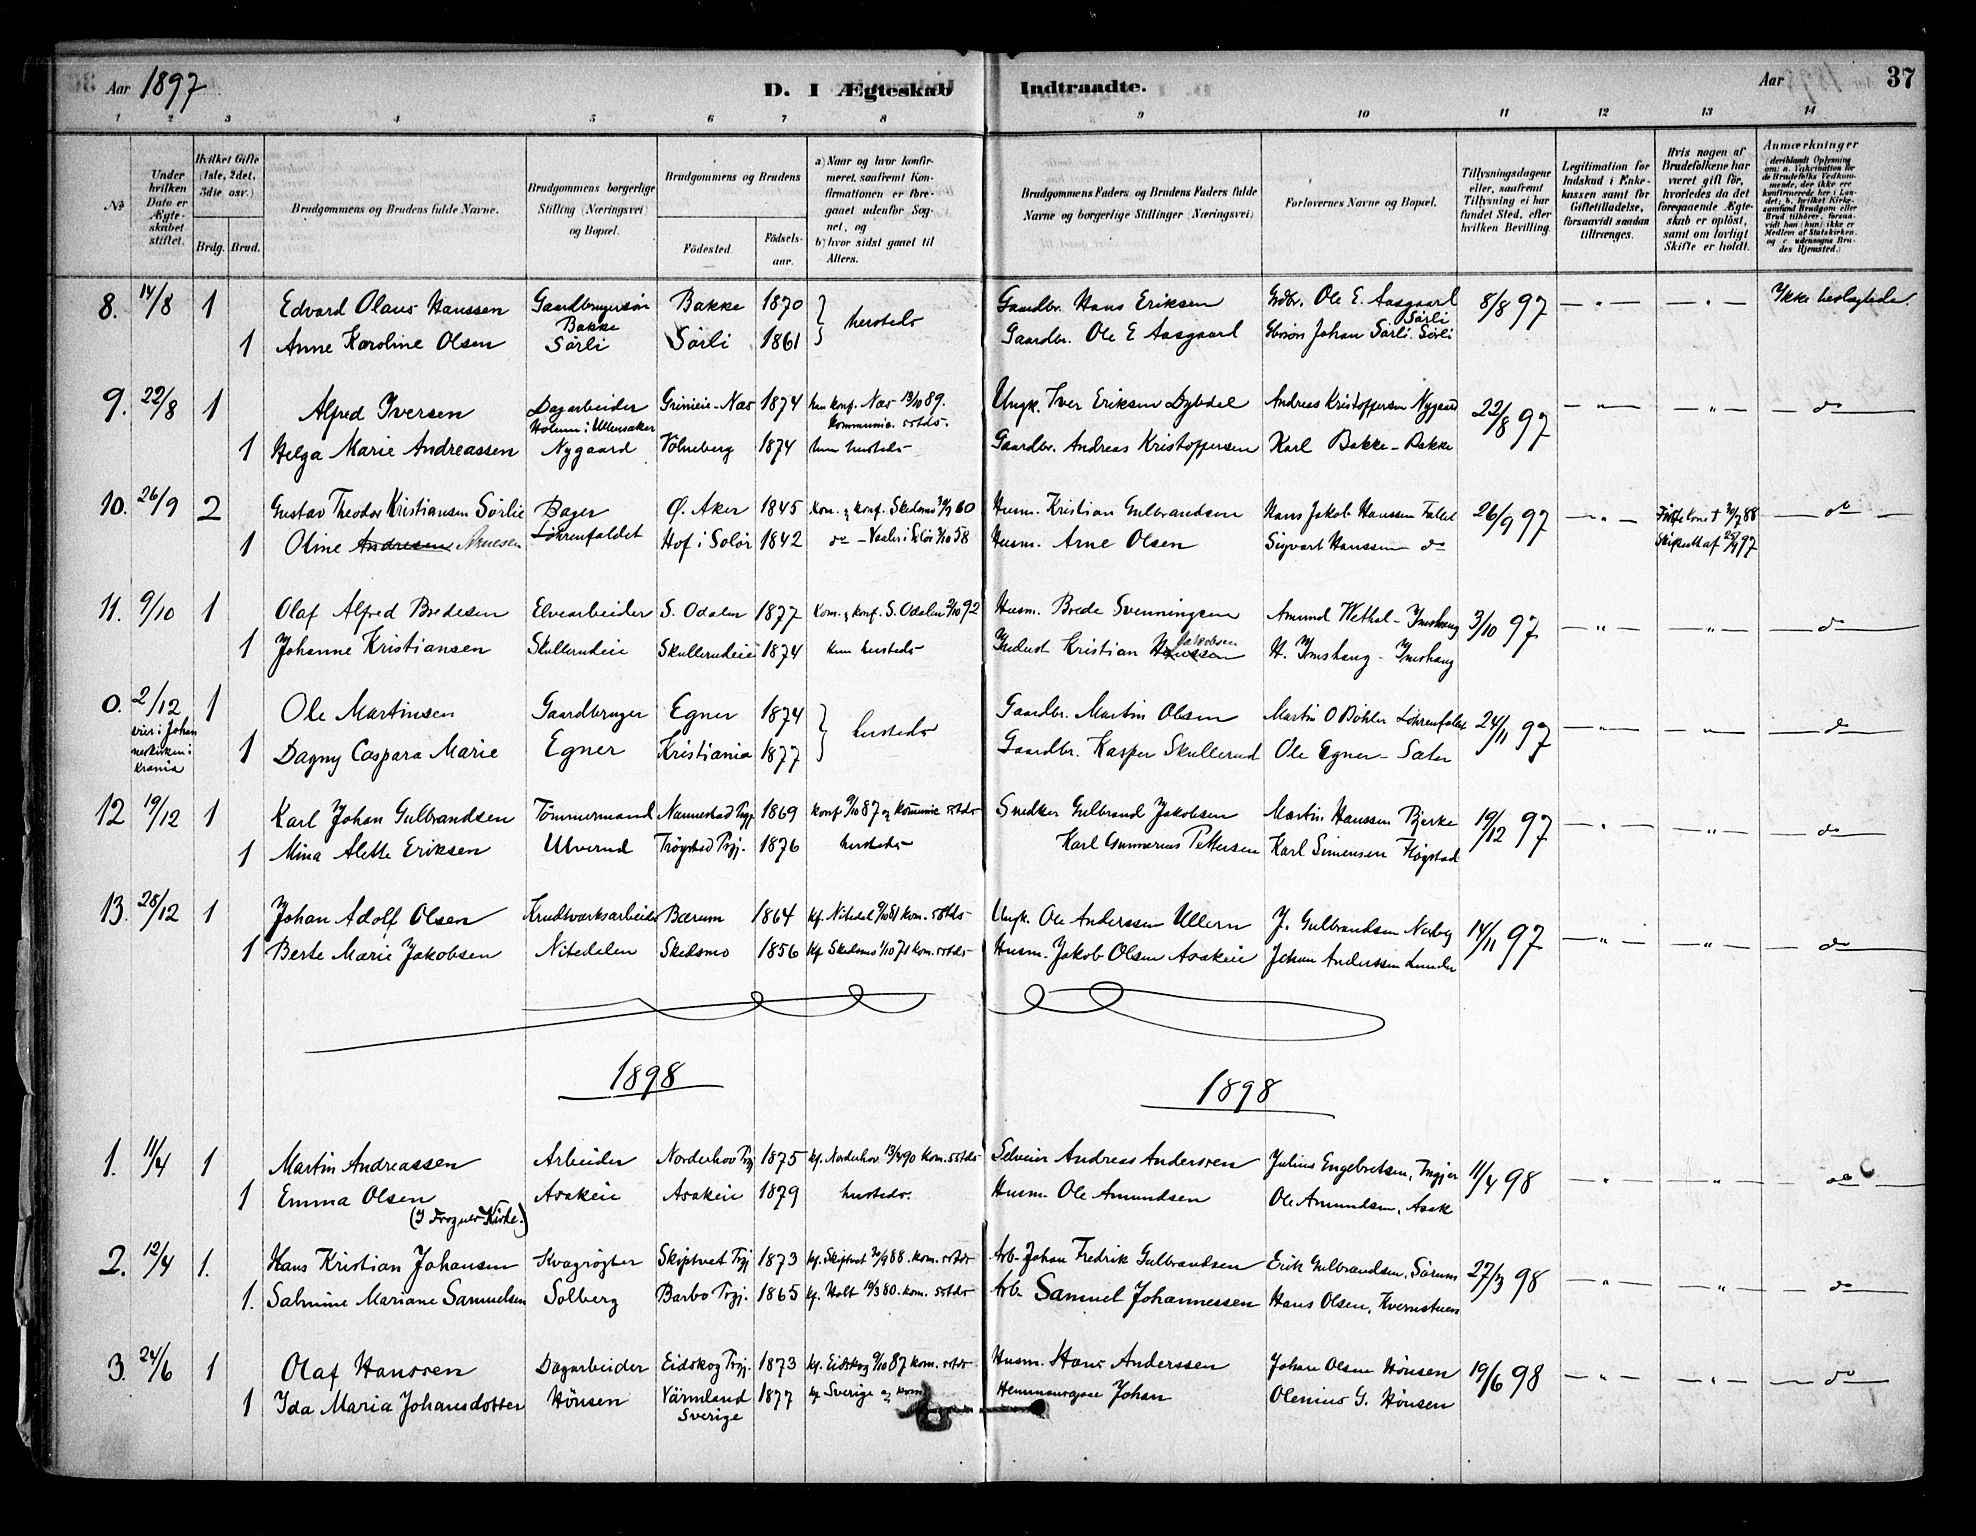 Aar 1897. D. I Ægteskab Indtraadte. Aar 37
1 2 3 4 5 6 7 8 9 10 11 12 13 14
No
Under hvilken Dato er Ægteskabet stiftet.
Hvilket Gifte (1ste, 2det, 3die osv.)
Brdg. Brud.
Brudgommens og Brudens fulde Navne.
Brudgommens borgerlige Stilling (Næringsvei) og Bopæl.
Brudgommens og Brudens
Födested. Födselsaar.
a) Naar og hvor konfirmeret, saafremt Konfirmationen er foregaaet udenfor Sognet, og
b) hvor sidst gaaet til Alters.
Brudgommens Faders og Brudens Faders fulde Navne og borgerlige Stillinger (Næringsvei)
Forlovernes Navne og Bopæl.
Tillysningsdagene eller, saafremt Tillysning ei har fundet Sted, efter hvilken Bevilling.
Legitimation for Indskud i Enkekassen samt for Giftetilladelse, forsaavidt saadan tiltrænges.
Hvis nogen af Brudefolkene har været gift för, hvorledes da det foregaaende Ægteskab er oplöst, samt om lovligt Skifte er holdt.
Anmærkninger
8. 14/8 1 Edvard Olaus Hanssen Gaardbrugersön Bakke 1870 Gaardbr. Hans Eriksen Gdbr. Ole E. Aasgaard 8/8 97 — " — — " — Ikke beslægtede.
Bakke } hersteds Sørli
1 Anne Karoline Olsen Sørli Sørli 1861 Gaardbr. Ole E Aasgaard Johan Sørli. Sørli
9. 22/8 1 Alfred Iversen Dagarbeider Grinieie - Næs 1874 han konf. Næs 13/10 89. Ungk. Iver Eriksen Dybdal Andreas Kristoffersen Nygaard 22/8 97 — " — — " — do
Holum i Ullensaker kommunic. sstds.
1 Helga Marie Andreassen Nygaard Völneberg 1874 hun hersteds Gaardbr. Andreas Kristoffersen Karl Bakke - Bakke
10. 26/9 2 Gustav Theodor Kristiansen Sørlie Bager Ø. Aker 1845 Kom. og konf. Skedsmo 60 Husm. Kristian Gulbrandsen Hans Jakob Hanssen Faldet 26/9 97 — " — Første Kone † 88 do
1 Oline Andresen Arnesen Løhrenfaldet Hof i Solör 1842 do - Vaaler i Solör 58 Husm. Arne Olsen Sigvart Hanssen do Skifteatt af 97
11. 9/10 1 Olaf Alfred Bredesen Elvearbeider S. Odalen 1877 Kom. og konf. S. Odalen 92 Husm. Brede Svenningsen Amund Wethal - Imshaug 3/10 97 — " — — " — do
1 Johanne Kristiansen Skullerudeie Skullerudeie 1874 hun hersteds Indust Kristian Hanssen Jakobsen H. Imshaug - Imshaug
0. 2/12 1 Ole Martinsen Gaardbruger Egner 1874 Gaardbr. Martin Olsen Martin O Böhler Löhrenfaldet 24/11 97 — " — — " — do
viet i Johanneskirken i Krania } hersteds
1 Dagny Caspara Marie Egner Kristiania 1877 Gaardbr. Kasper Skullerud Ole Egner - Sæter
12 19/12 1 Karl Johan Gulbrandsen Tömmermand Nannestad Prgj. 1869 Konf 9/10 87 og kommunic sstds Snedker Gulbrand Jakobsen Martin Hanssen Bjerke 19/12 97 — " — — " — do
1 Mina Alette Eriksen Ulverud Trögstad Prgj. 1876 hersteds Karl Gunnerius Pettersen Karl Simensen Högstad
13. 28/12 1 Johan Adolf Olsen Krudtværksarbeider Bærum 1864 kf. Nitedal 81 kom. sstds Ungk. Ole Anderssen Ullern J. Gulbrandsen Nerby 14/11 97 — " — — " — do
1 Berte Marie Jakobsen Nitedalen Skedsmo 1856 kf Skedsmo 1/10 71 kom. sstds Husm. Jakob Olsen Asakeie Johan Anderssen Lunder
1898 1898
1. 11/4 1 Martin Andreassen Arbeider Norderhov Prgj 1875 kf. Norderhov 13/4 90 kom. sstds Selveier Andreas Andersen Julius Engebretsen, Ingjer 11/4 98 — " — — " — do
1 Emma Olsen Asakeie Asakeie 1879 hersteds. Husm. Ole Amundsen Ole Amundsen, Asak
(I Frogner Kirke.)
2. 12/4 1. Hans Kristian Johansen Kvægrögter Skiptvet Prgj 1873 kf. Skiptvet 88. kom. sstds Arb. Johan Fredrik Gulbrandsen Erik Gulbrandsen, Sörum 27/3 98 — " — — " — do
1. Salmine Mariane Samuelsen Solberg Barbo Prgj. 1865 kf. Holt 80. kom. sstds Arb. Samuel Johannessen Hans Olsen, Kvernstuen
3. 24/6 1 Olaf Hanssen Dagarbeider Eidskog Prgj. 1873 kf. Eidskog 9/10 87 kom. sstds Husm. Hans Anderssen Johan Olsen Hönsen 19/6 98 — " — — " — do
1 Ida Maria Johansdotter Hönsen Värmland 1877 kf Sverige og kom Johan Olenius G. Hönsen
Sverige